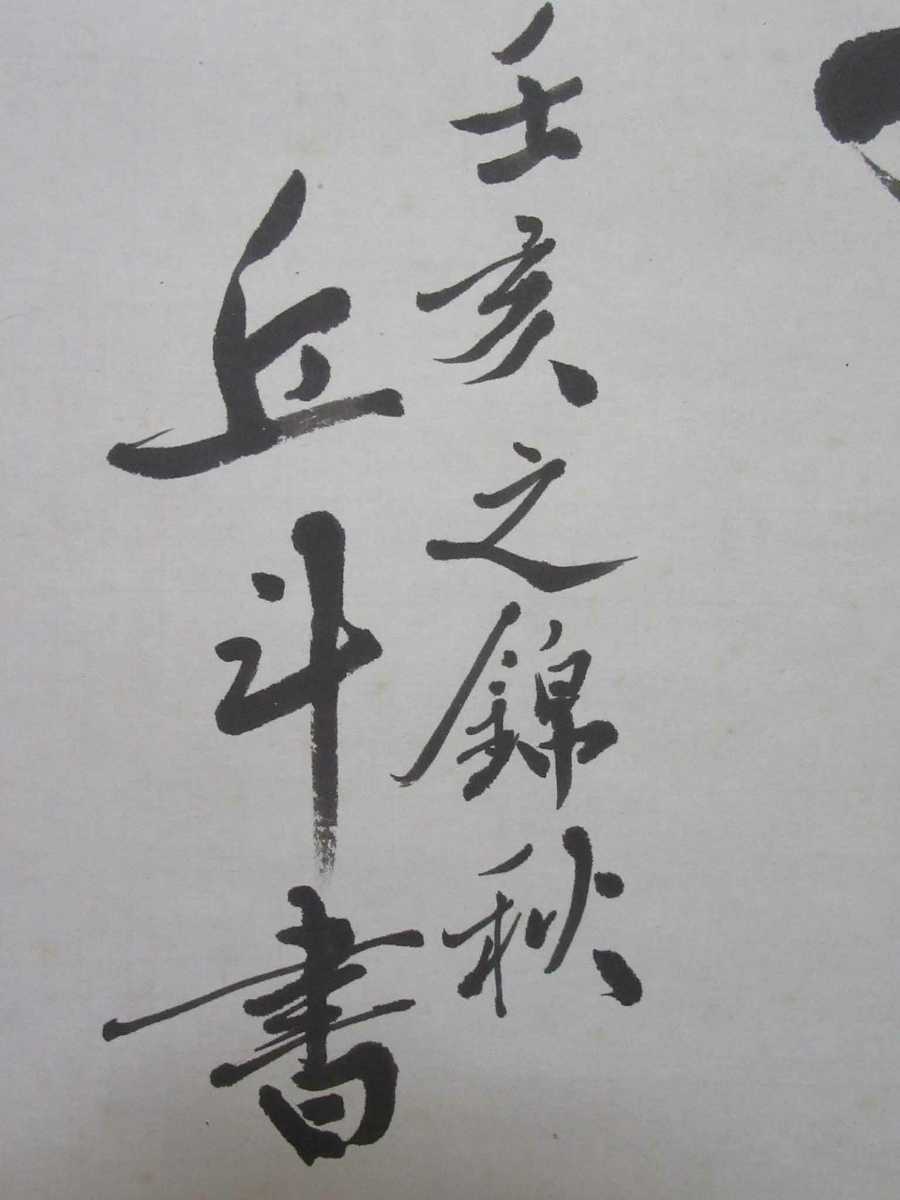 壬亥之錦秋
丘斗書